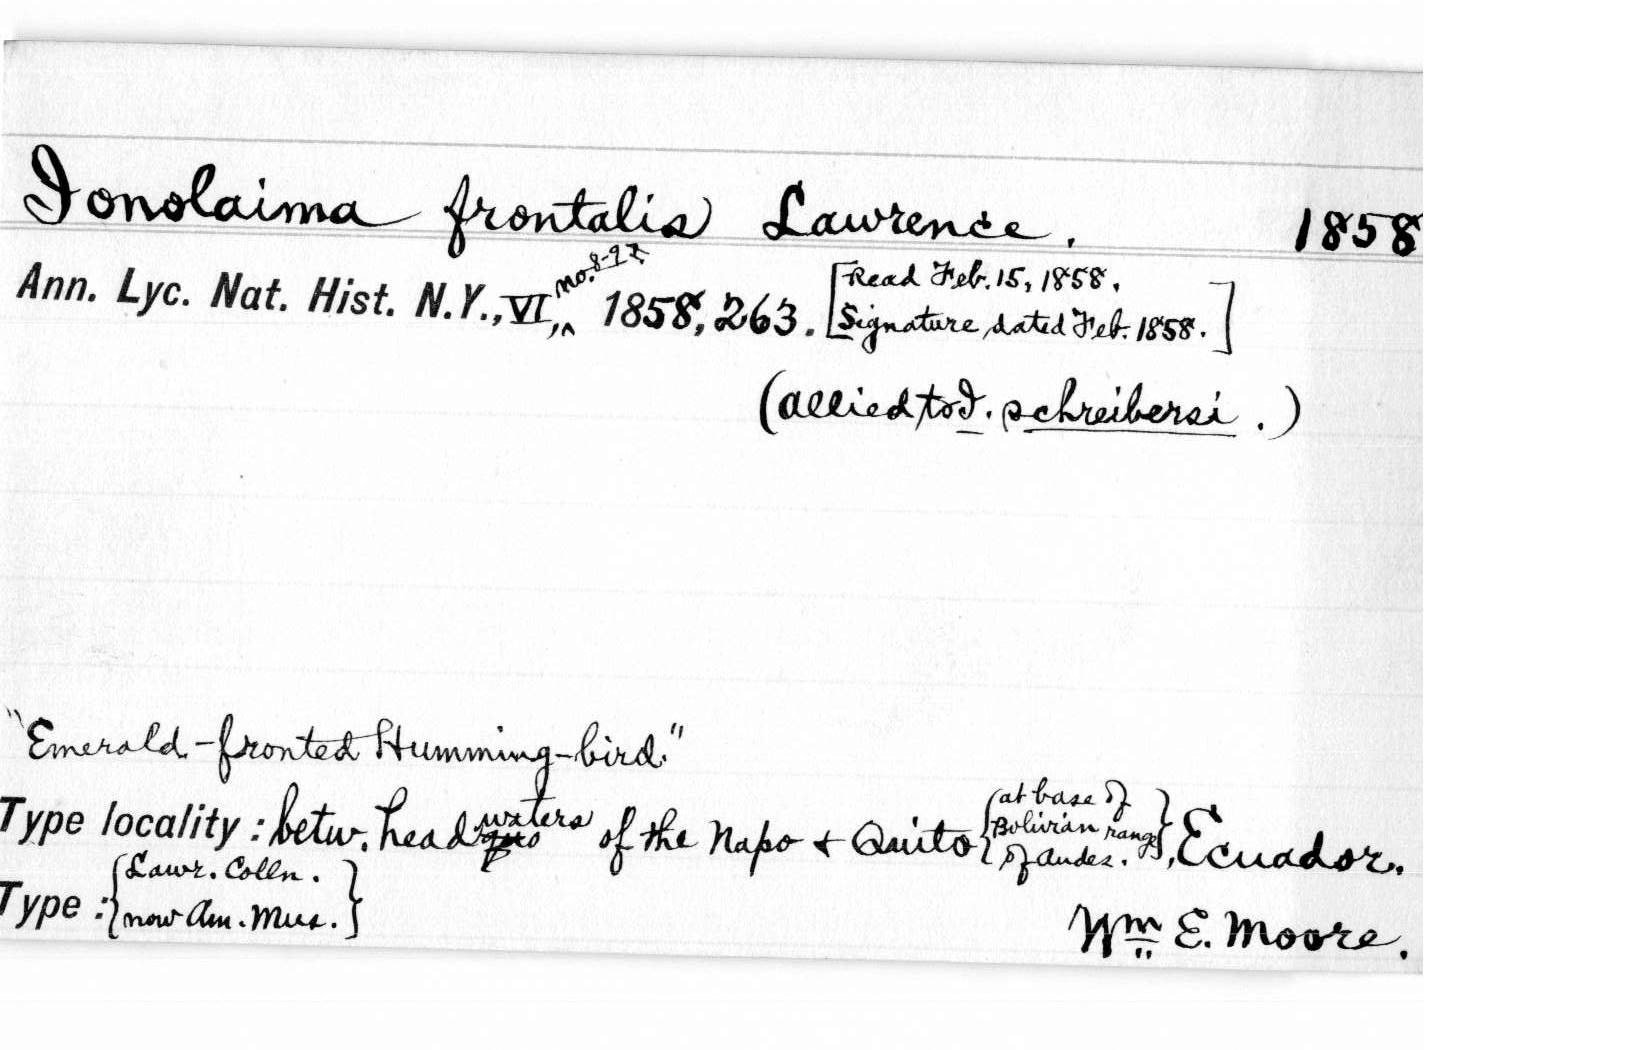 Ionolaima frontalis Lawrence. 1858
Ann. Lyc. Nat. Hist. N.Y., VI, no. 8-9?, 1858, 263. [Read Feb. 15, 1858,
Signature dated Feb. 1858.]
(allied to I. schreibersi.)
"Emerald-fronted Humming-bird."
Type locality: betw. headwaters of the Napo + Quito {at base of
Bolivian range
of Andes.}, Ecuador.
Type: {Lawr. Colln.
now Am. Mus.}
Wm E. Moore.